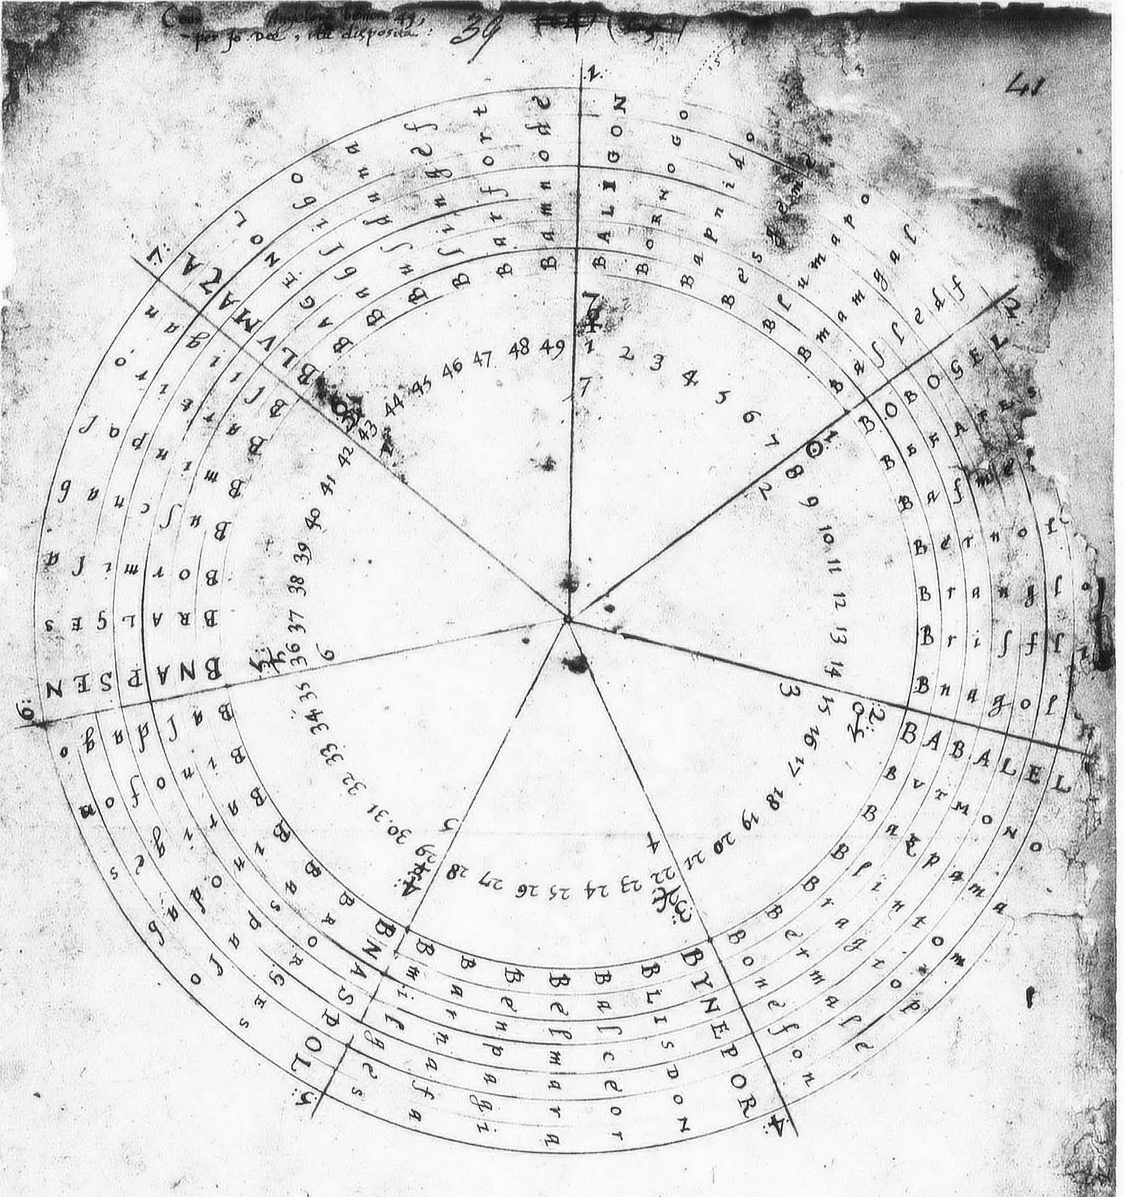 per Jo Dee, ita disposita:
39
41
1:
BALIGON
BORNOGO
Bapnido
Blumapo
Bmamgal
Basledf
2:
BOBOGEL
BEFAFES
Basmel
Bernol
Brangl
Brisfl
Bnagol
BABALEL
BVTMONO
Bazpama
Blintom
Bragiop
Betmale
Bonefon
4:
BYNEPOR
BLISDON
Balceor
Belmara
Benpagi
Barnafa
Bmilges
5:
BNASPOL
BRORGES
Baspalo
Binodab
Bariges
Binofon
Baldago
6:
BNAPSEN
BRALGES
Bormila
Buscnab
Bminpal
Bartiro
Bliigan
7:
BLVMAZA
BAGENOL
Bablibo
Busduna
Blingef
Barfort
Bamnode
1 2 3 4 5 6 7
8 9 10 11 12 13 14
15 16 17 18 19 20 21
22 23 24 25 26 27 28
29 30 31 32 33 34 35
36 37 38 39 40 41 42
43 44 45 46 47 48 49
7
2
3
4
5
6